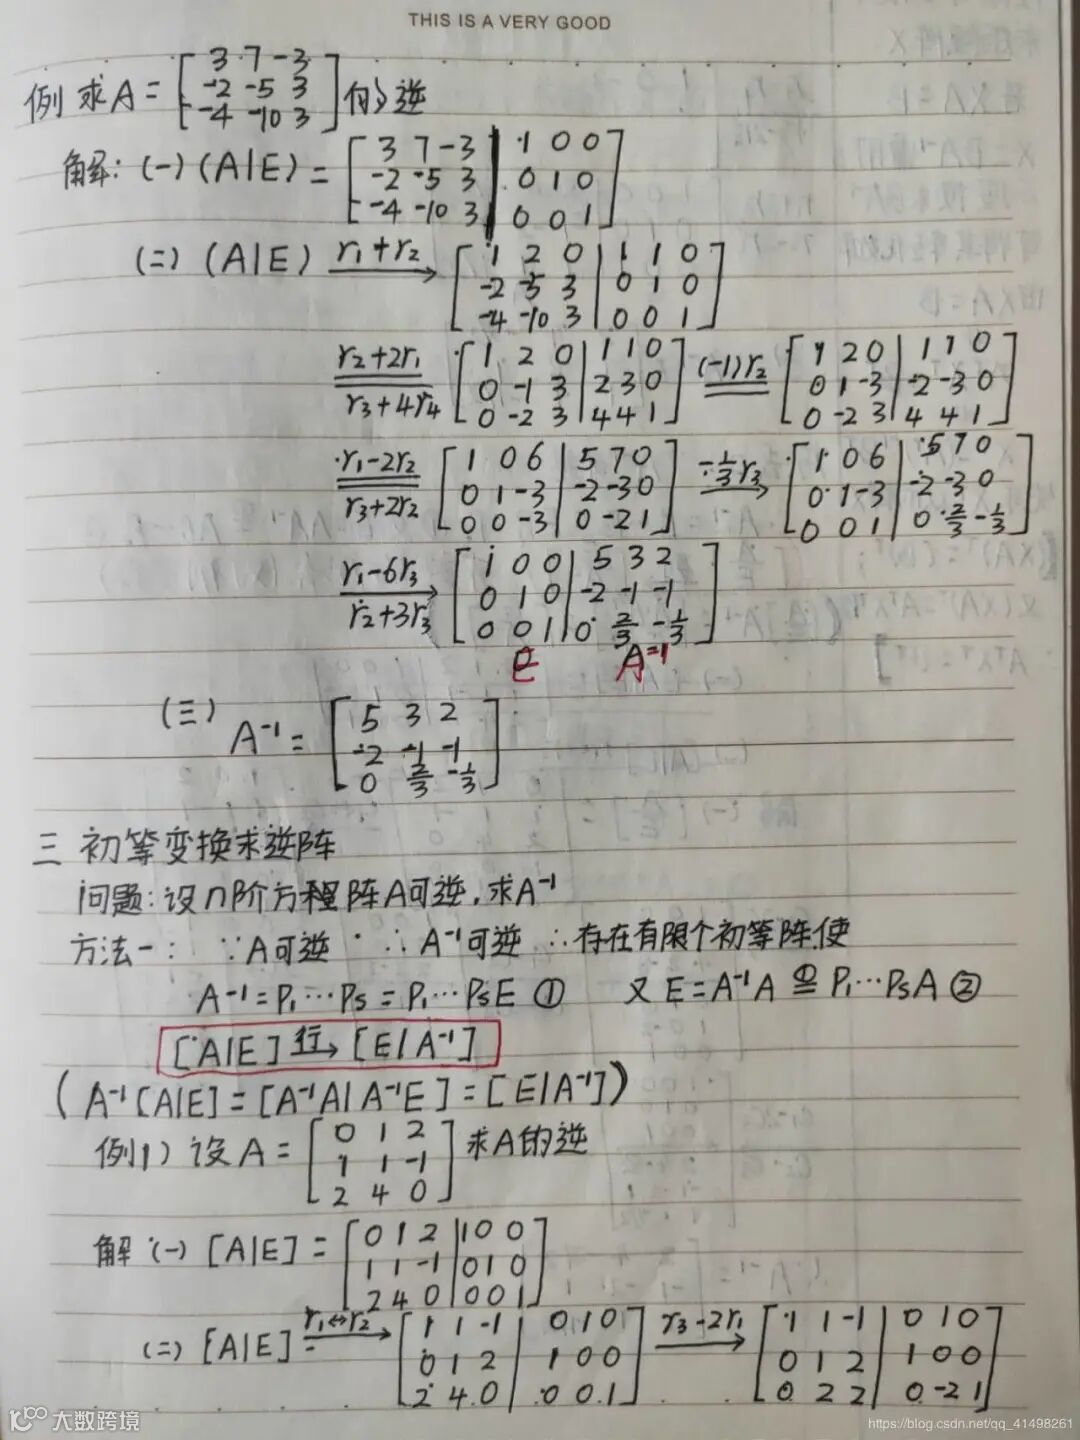 THIS IS A VERY GOOD
例 求A = [3 7 -3; -2 -5 3; -4 -10 3] 的逆
解: (一) (A|E) = [3 7 -3 | 1 0 0; -2 -5 3 | 0 1 0; -4 -10 3 | 0 0 1]
(二) (A|E) r₁+r₂ → [1 2 0 | 1 1 0; -2 -5 3 | 0 1 0; -4 -10 3 | 0 0 1]
r₂+2r₁ r₃+4r₄ [1 2 0 | 1 1 0; 0 -1 3 | 2 3 0; 0 -2 3 | 4 4 1] (-1)r₂ [1 2 0 | 1 1 0; 0 1 -3 | -2 -3 0; 0 -2 3 | 4 4 1]
r₁-2r₂ r₃+2r₂ [1 0 6 | 5 7 0; 0 1 -3 | -2 -3 0; 0 0 -3 | 0 -2 1] -1/3 r₃ → [1 0 6 | 5 7 0; 0 1 -3 | -2 -3 0; 0 0 1 | 0 2/3 -1/3]
r₁-6r₃ r₂+3r₃ → [1 0 0 | 5 3 2; 0 1 0 | -2 -1 -1; 0 0 1 | 0 2/3 -1/3]
E A⁻¹
(三) A⁻¹ = [5 3 2; -2 -1 -1; 0 2/3 -1/3]
三 初等变换求逆阵
问题: 设n阶方程阵A可逆, 求A⁻¹
方法一: ∵A可逆 ∴A⁻¹可逆 ∴存在有限个初等阵,使
A⁻¹=P₁…Ps=P₁…PsE ① 又E=A⁻¹A ①= P₁…PsA ②
[A|E] 行→ [E|A⁻¹]
(A⁻¹[A|E]=[A⁻¹A|A⁻¹E]=[E|A⁻¹])
例1) 设A = [0 1 2; 1 1 -1; 2 4 0] 求A的逆
解 (一) [A|E] = [0 1 2 | 1 0 0; 1 1 -1 | 0 1 0; 2 4 0 | 0 0 1]
(二) [A|E] r₁↔r₂ → [1 1 -1 | 0 1 0; 0 1 2 | 1 0 0; 2 4 0 | 0 0 1] r₃-2r₁ → [1 1 -1 | 0 1 0; 0 1 2 | 1 0 0; 0 2 2 | 0 -2 1]
大数跨境
https://blog.csdn.net/qq_41498261